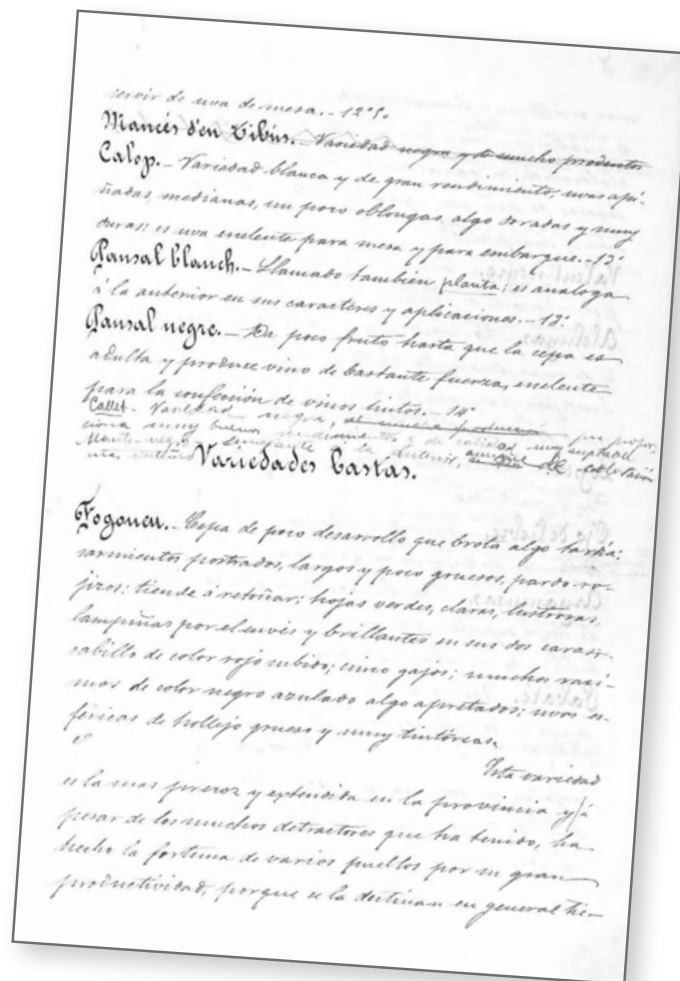 servir de uva de mesa. - 12°5.
Mancés d'en Tibús. - Variedad negra y de mucho productos
Calop. - Variedad blanca y de gran rendimiento; uvas api-
ñadas, medianas, un poco oblongas, algo doradas y muy
duras: es uva excelente para mesa y para embarque. - 13°
Pansal blanch. - Llamado tambien planta; es analoga
á la anterior en sus caracteres y aplicaciones. - 13°
Pansal negre. - Da poco fruto hasta que la cepa es
adulta y produce vino de bastante fuerza, excelente
para la confección de vinos tintos. - 14°
Callet. Variedad negra, de mucha produccion
ciona muy buenos rendimientos y de calidad muy aceptable
Manto-negro semejante á la anterior, aunque de coloración
Variedades bastas.
Fogoneu. - Cepa de poco desarrollo que brota algo tardía;
sarmientos postrados, largos y poco gruesos, pardo-ro-
jizos; tiende á retoñar; hojas verdes, claras, lustrosas,
lampiñas por el envés y brillantes en sus dos caras;
cabillo de color rojo subido; cinco gajos; muchos raci-
mos de color negro azulado algo apretados; uvas es-
féricas de hollejo grueso y muy tintóreas.
Esta variedad
es la mas precoz y extendida en la provincia y á
pesar de los muchos detractores que ha tenido, ha
hecho la fortuna de varios pueblos por su gran
productividad, porque se la destinan en general tie-